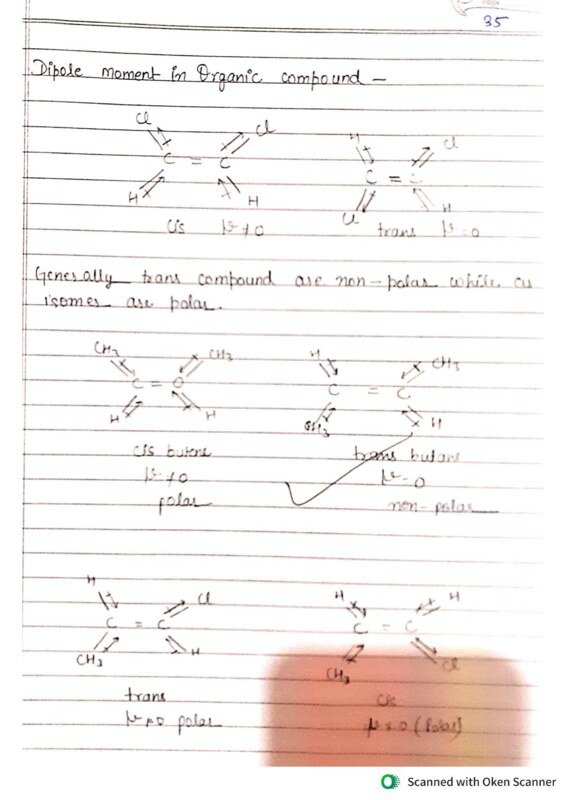 35
Dipole moment in Organic compound –
Cl Cl
C = C
H H
cis μ≠0
H Cl
C = C
Cl H
trans μ=0
Generally trans compound are non-polar while cis
isomes are polar.
CH3 CH3
C = C
H H
cis butene
μ≠0
polar
H CH3
C = C
CH3 H
trans butane
μ=0
non-polar
H Cl
C = C
CH3 H
trans
μ≠0 polar
H H
C = C
CH3 Cl
cis
μ≠0 (Polar)
Scanned with Oken Scanner